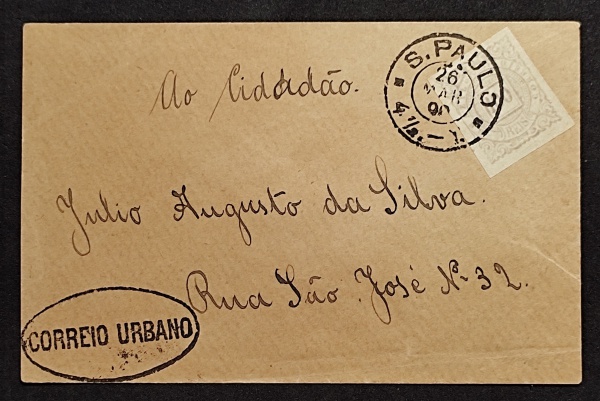 Ao Cidadão.
S. PAULO
26
MAR
90
Julio Augusto da Silva.
Rua São José Nº 32.
CORREIO URBANO